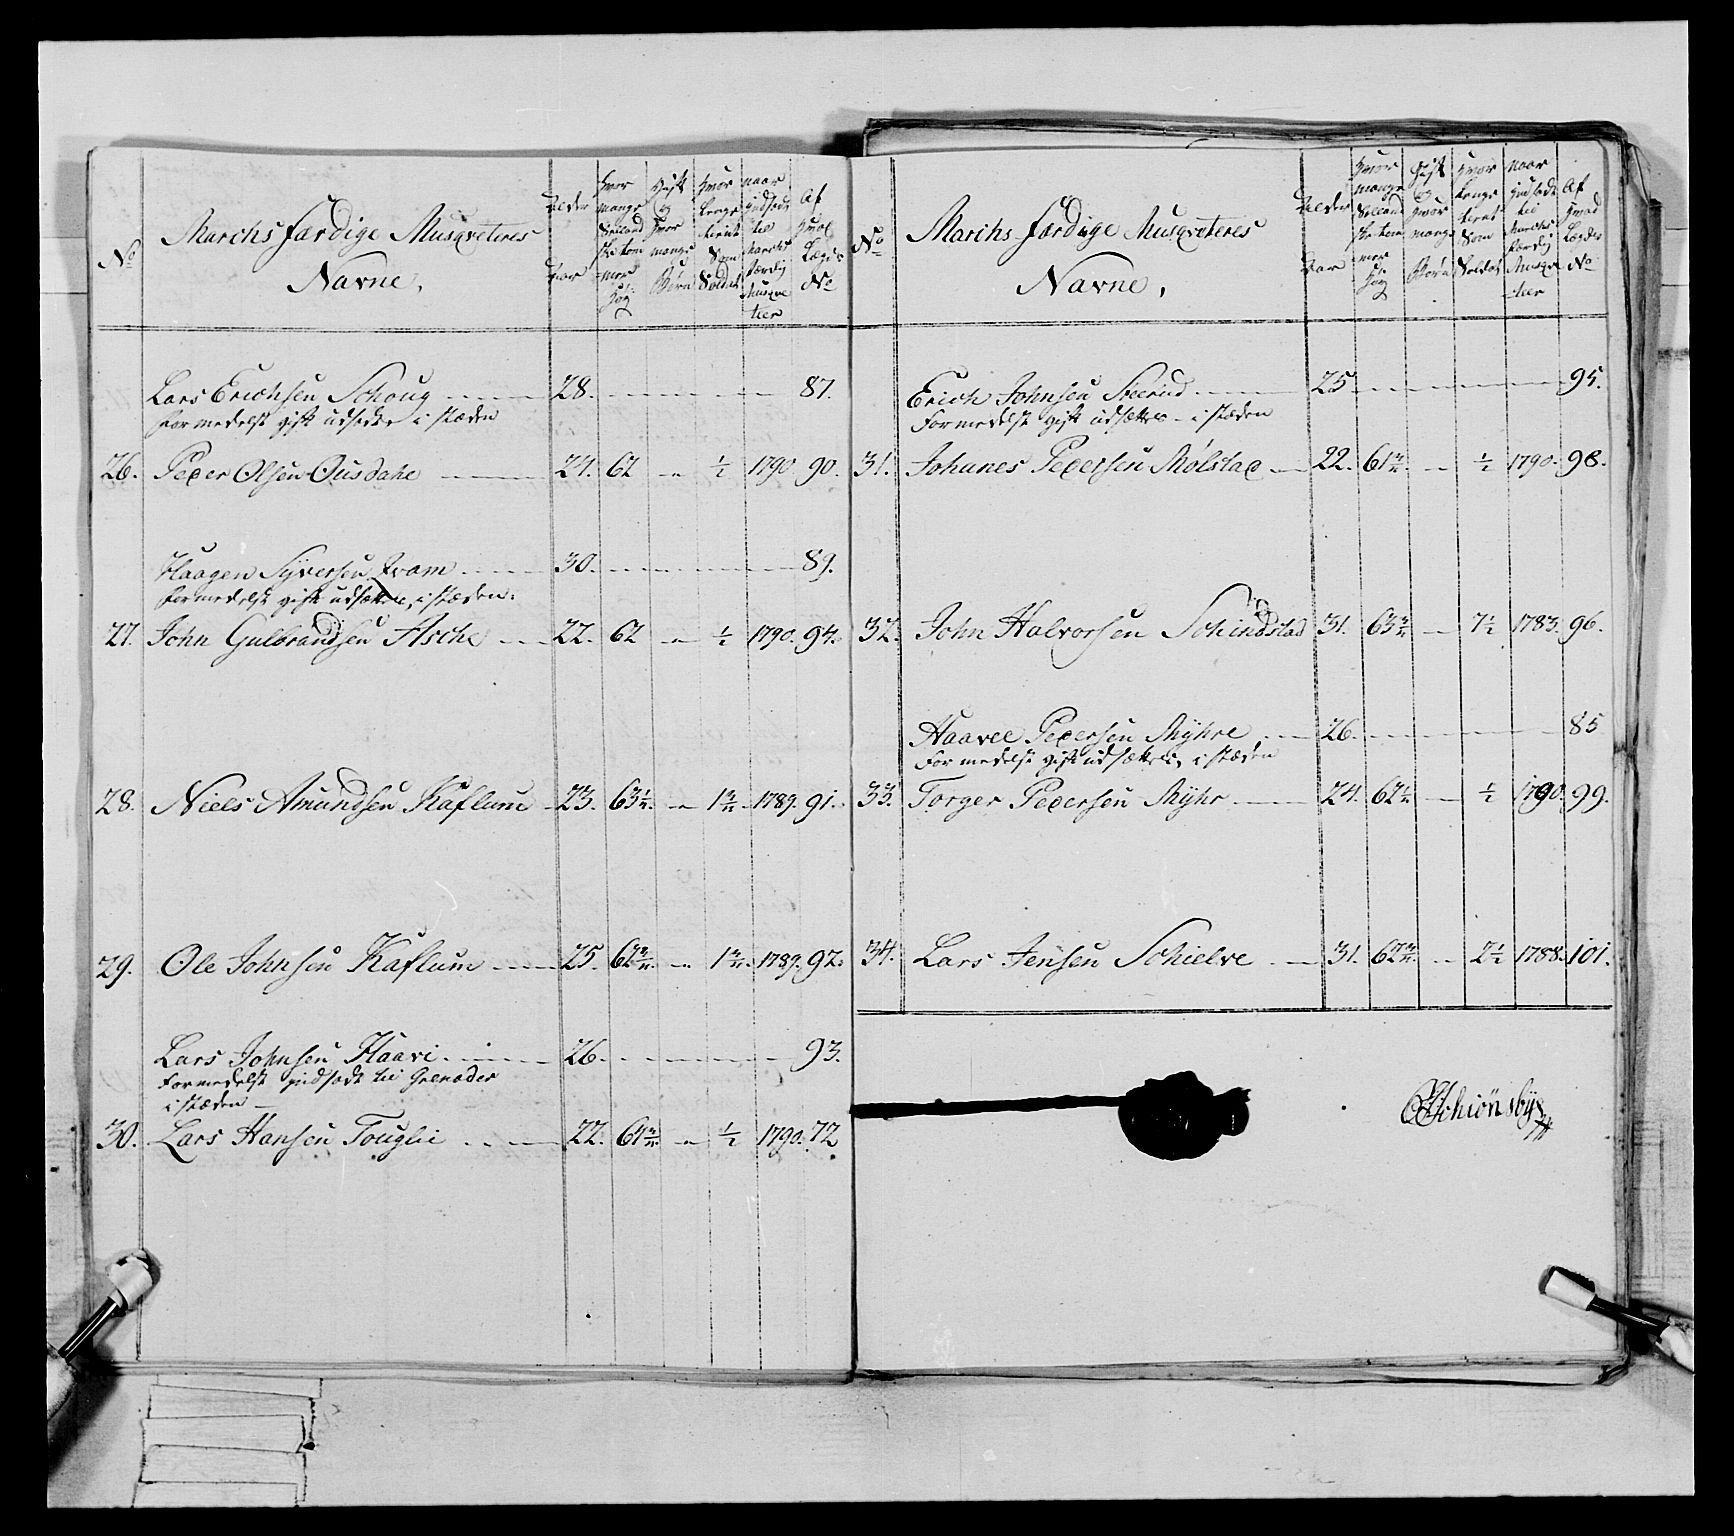 No
Marchs færdige Musqveteres
Navne,
Alder
Aar
Hvor mange Siellandske tommer høy
Gift og Hvor mange Børn
Hvor lenge tient Som Soldat
naar Indsadt til Marchs færdig Musqveteer
Af Hvad Lægds No
Lars Erichsen Schoug 28. 87.
formedelst gift udsedte i stæden
26. Peder Olsen Ousdahl 24. 62 „ ½ 1790 90.
Haagen Syversen Tvam 30. 89.
formedelst gift udsættes, i stæden.
27. John Gulbrandsen Asche 22. 62 „ ½ 1790. 94.
28. Niels Amundsen Kaflum 23. 63½. „ 1¾. 1789. 91.
29. Ole Johnsen Kaflum 25. 62¾. „ 1¾. 1789. 92.
Lars Johnsen Haavi 26. 93.
Formedelst indsadt til Grenader
i stæden
30. Lars Hansen Touglie 22. 61¾. „ ½ 1790. 72.
No
Marchs færdige Musqveteres
Navne,
Alder
Aar
Hvor mange Siellandske tommer høy
Gift og Hvor mange Børn
Hvor lenge tient Som Soldat
naar Indsadt til Marchs færdig Musqveteer
Af Hvad Lægds No
Erich Johnsen Steerud 25 95.
Formedelst gift udsættes i stæden
31. Johanes Pedersen Mølstad 22. 61¾. ½ 1790. 98.
32. John Halvorsen Schindstad 31. 63¾ 7½ 1783. 96.
Haavel Pedersen Myhre 26. 85
Formedelst gift udsættes, i stæden
33. Torger Pedersen Myhr 24. 62½ ½ 1790. 99.
34. Lars Jensen Schielve 31. 62¾. 2½ 1788. 101.
Schiønsbye